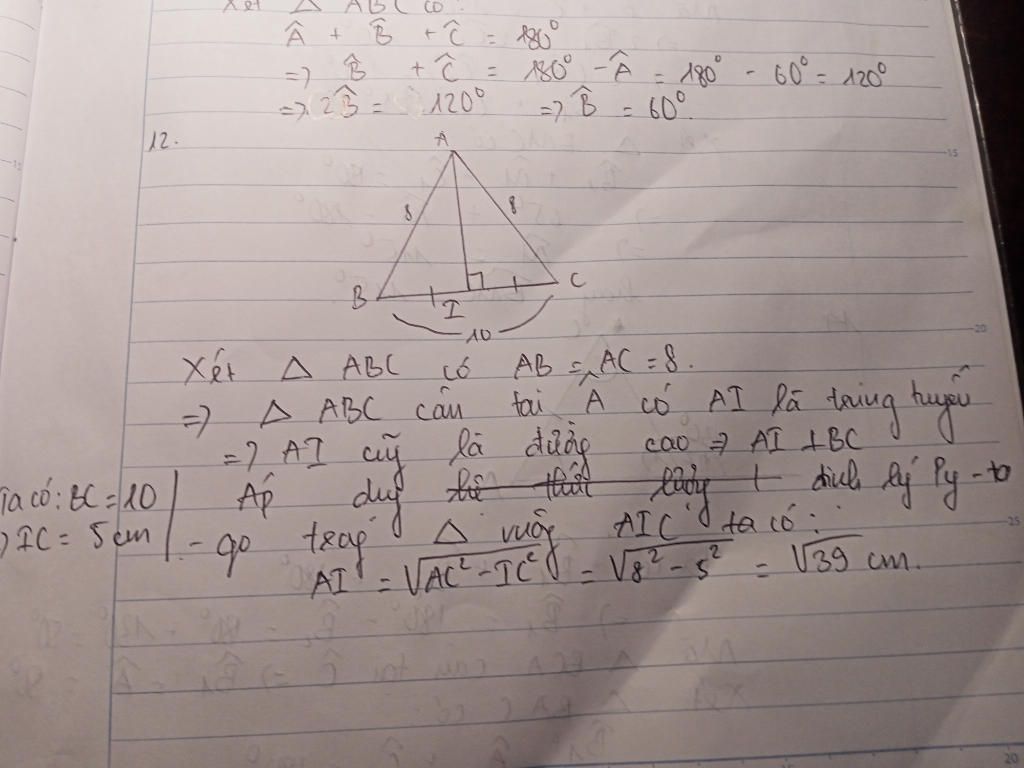 Xét △ ABC có:
Â + B̂ + Ĉ = 180°
=> B̂ + Ĉ = 180° - Â = 180° - 60° = 120°
=> 2B̂ = 120° => B̂ = 60°.
12.
A
8 8
B I C
10
Xét △ ABC có AB = AC = 8.
=> △ ABC cân tại Â có AI là trung tuyến
=> AI cũg là đườg cao => AI ⊥ BC
Ta có: BC = 10 | Áp dụg hệ thức lượg + định lý Py - ta
=> IC = 5 cm | - go trog △ vuôg AIC ta có:
AI = √AC² - IC² = √8² - 5² = √39 cm.